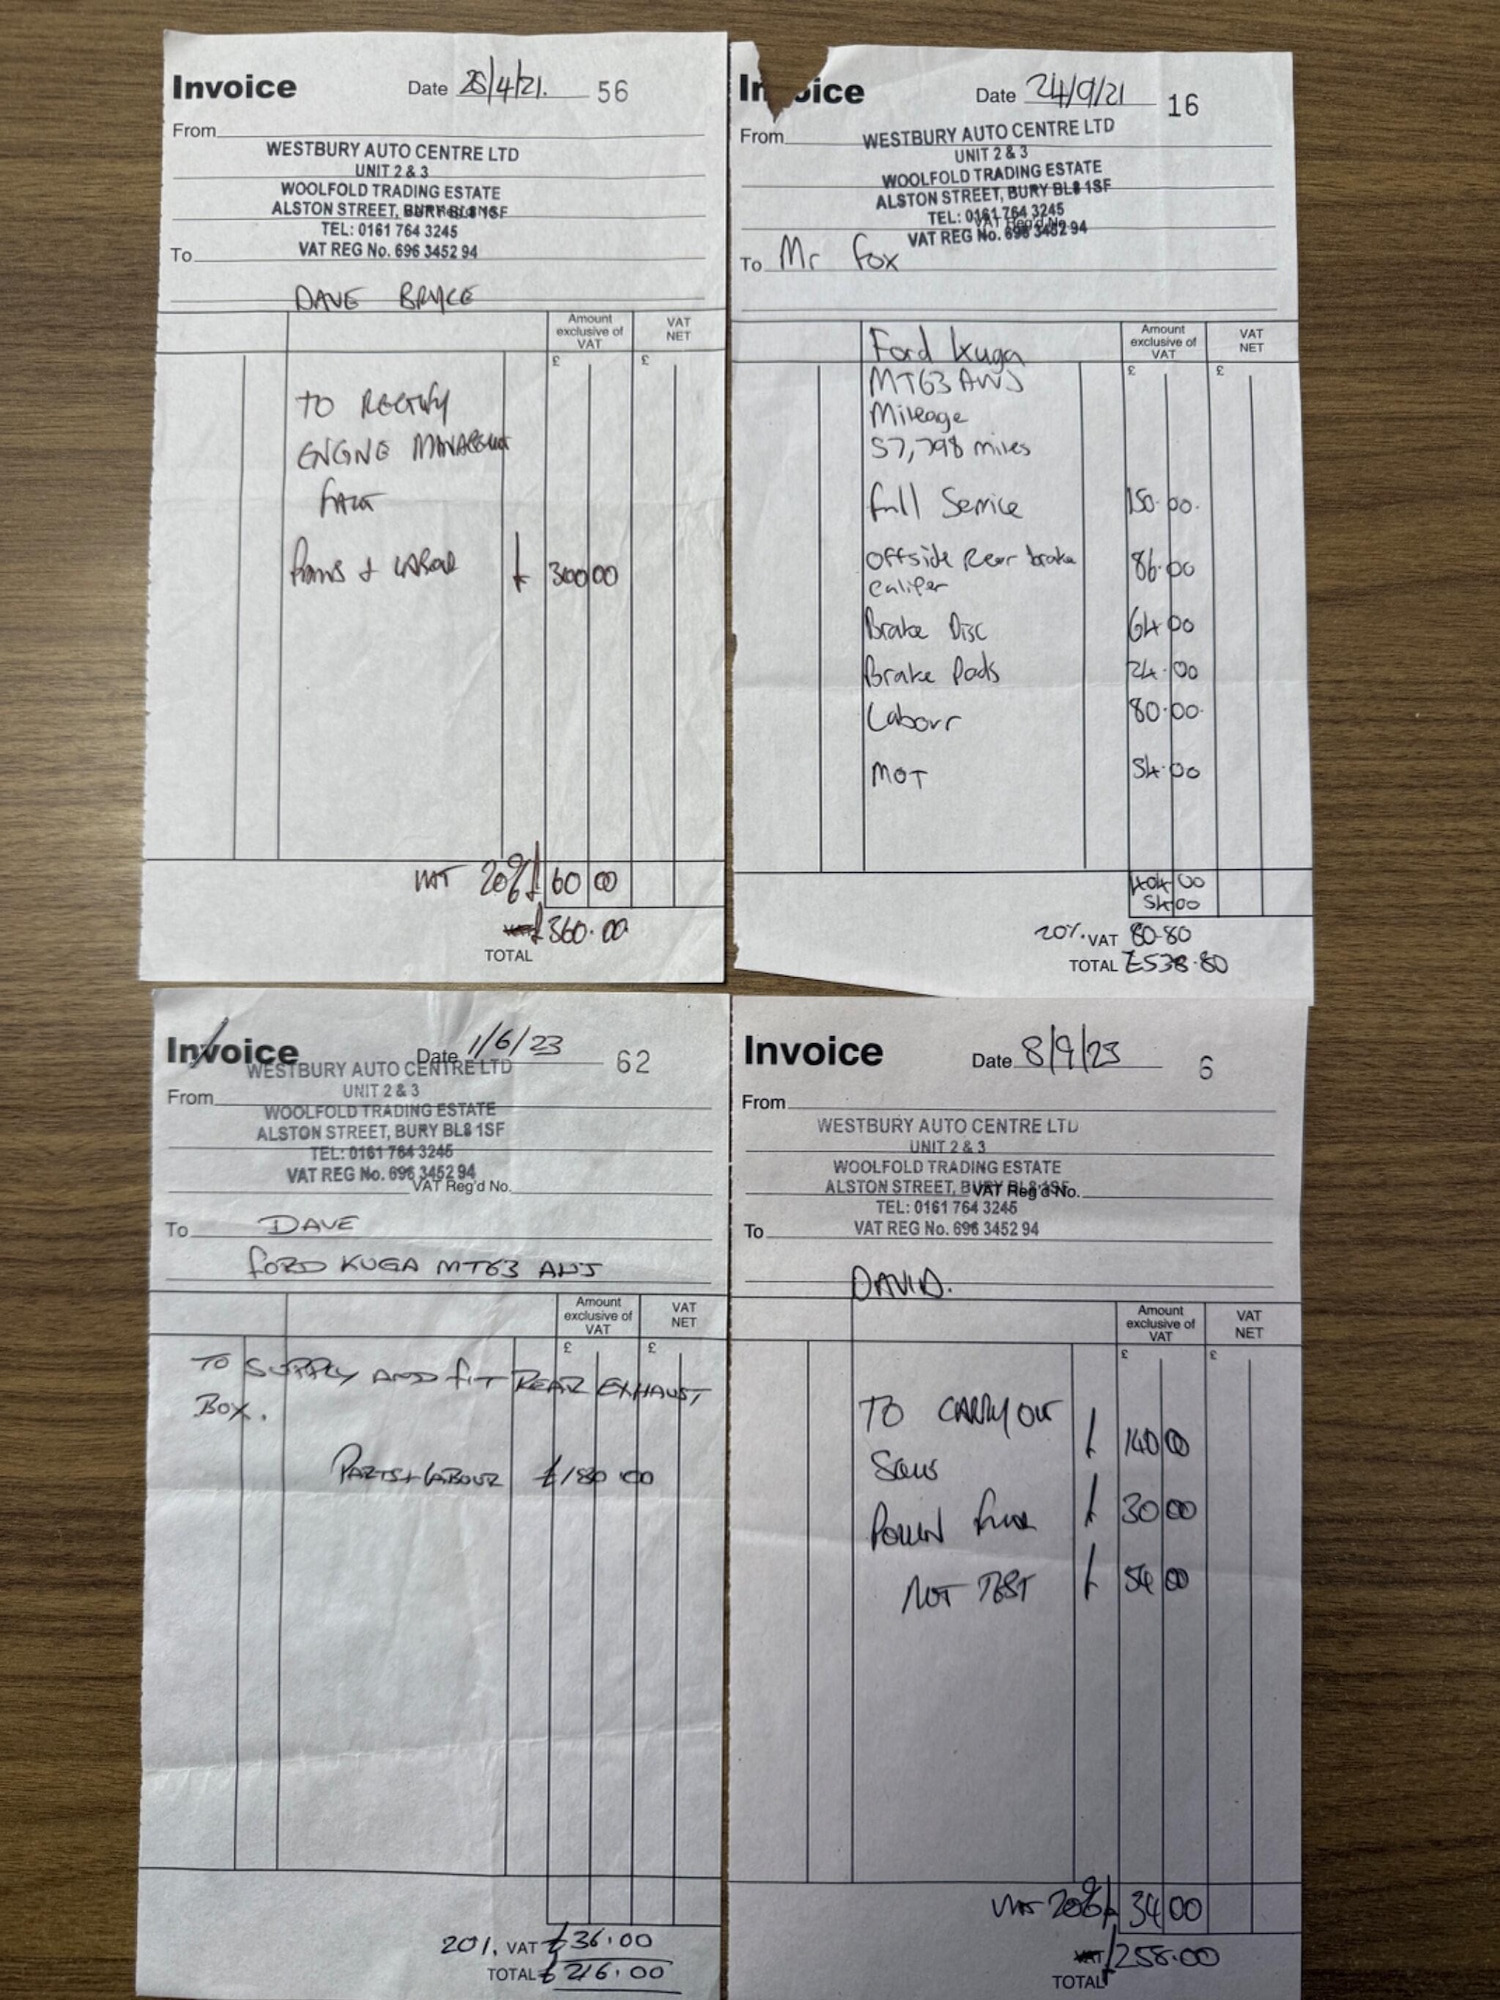 Invoice
Date 25/4/21. 56
From
WESTBURY AUTO CENTRE LTD
UNIT 2 & 3
WOOLFOLD TRADING ESTATE
ALSTON STREET, BURY BL8 1SF
TEL: 0161 764 3245
VAT REG No. 696 3452 94
To
DAVE BRYCE
Amount exclusive of VAT
VAT NET
£ £
TO RECTIFY
ENGINE MANAGEMENT
FAULT
PARTS + LABOUR £ 300 00
VAT 20% £ 60 00
£360.00
TOTAL
Invoice
Date 24/9/21 16
From
WESTBURY AUTO CENTRE LTD
UNIT 2 & 3
WOOLFOLD TRADING ESTATE
ALSTON STREET, BURY BL8 1SF
TEL: 0161 764 3245
VAT Reg'd No.
VAT REG No. 696 3452 94
To Mr Fox
Amount exclusive of VAT
VAT NET
£ £
Ford Kuga
MT63 AWJ
Mileage
57,798 miles
Full Service 150.00
Offside Rear brake
Caliper 86.00
Brake Disc 64.00
Brake Pads 24.00
Labour 80.00
MOT 54.00
404 00
54 00
20% VAT 80.80
TOTAL £538.80
Invoice
Date 1/6/23 62
WESTBURY AUTO CENTRE LTD
From
UNIT 2 & 3
WOOLFOLD TRADING ESTATE
ALSTON STREET, BURY BL8 1SF
TEL: 0161 764 3245
VAT REG No. 696 3452 94
VAT Reg'd No.
To DAVE
FORD KUGA MT63 AWJ
Amount exclusive of VAT
VAT NET
£ £
TO SUPPLY AND FIT REAR EXHAUST
BOX.
PARTS + LABOUR £180 00
20%. VAT £36.00
TOTAL £216.00
Invoice
Date 8/9/23 6
From
WESTBURY AUTO CENTRE LTD
UNIT 2 & 3
WOOLFOLD TRADING ESTATE
ALSTON STREET, BURY BL8 1SF
VAT Reg'd No.
TEL: 0161 764 3245
To
VAT REG No. 696 3452 94
DAVID.
Amount exclusive of VAT
VAT NET
£ £
TO CARRY OUT £ 140 00
£ 30 00
MOT TEST £ 54 00
VAT 20% £ 34 00
VAT £258.00
TOTAL